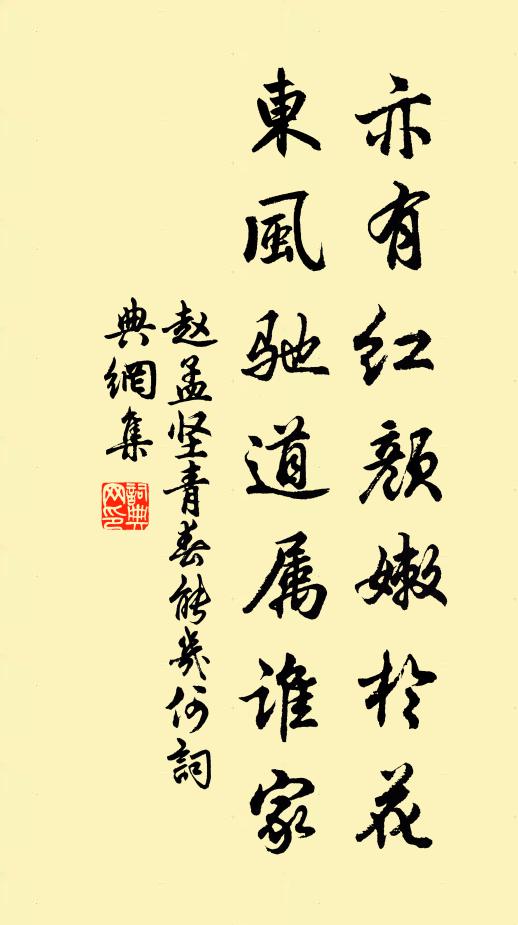 亦有红颜嫩於花
東風驰道属谁家
赵孟坚青春能幾何詞
典網集
詞典
网印